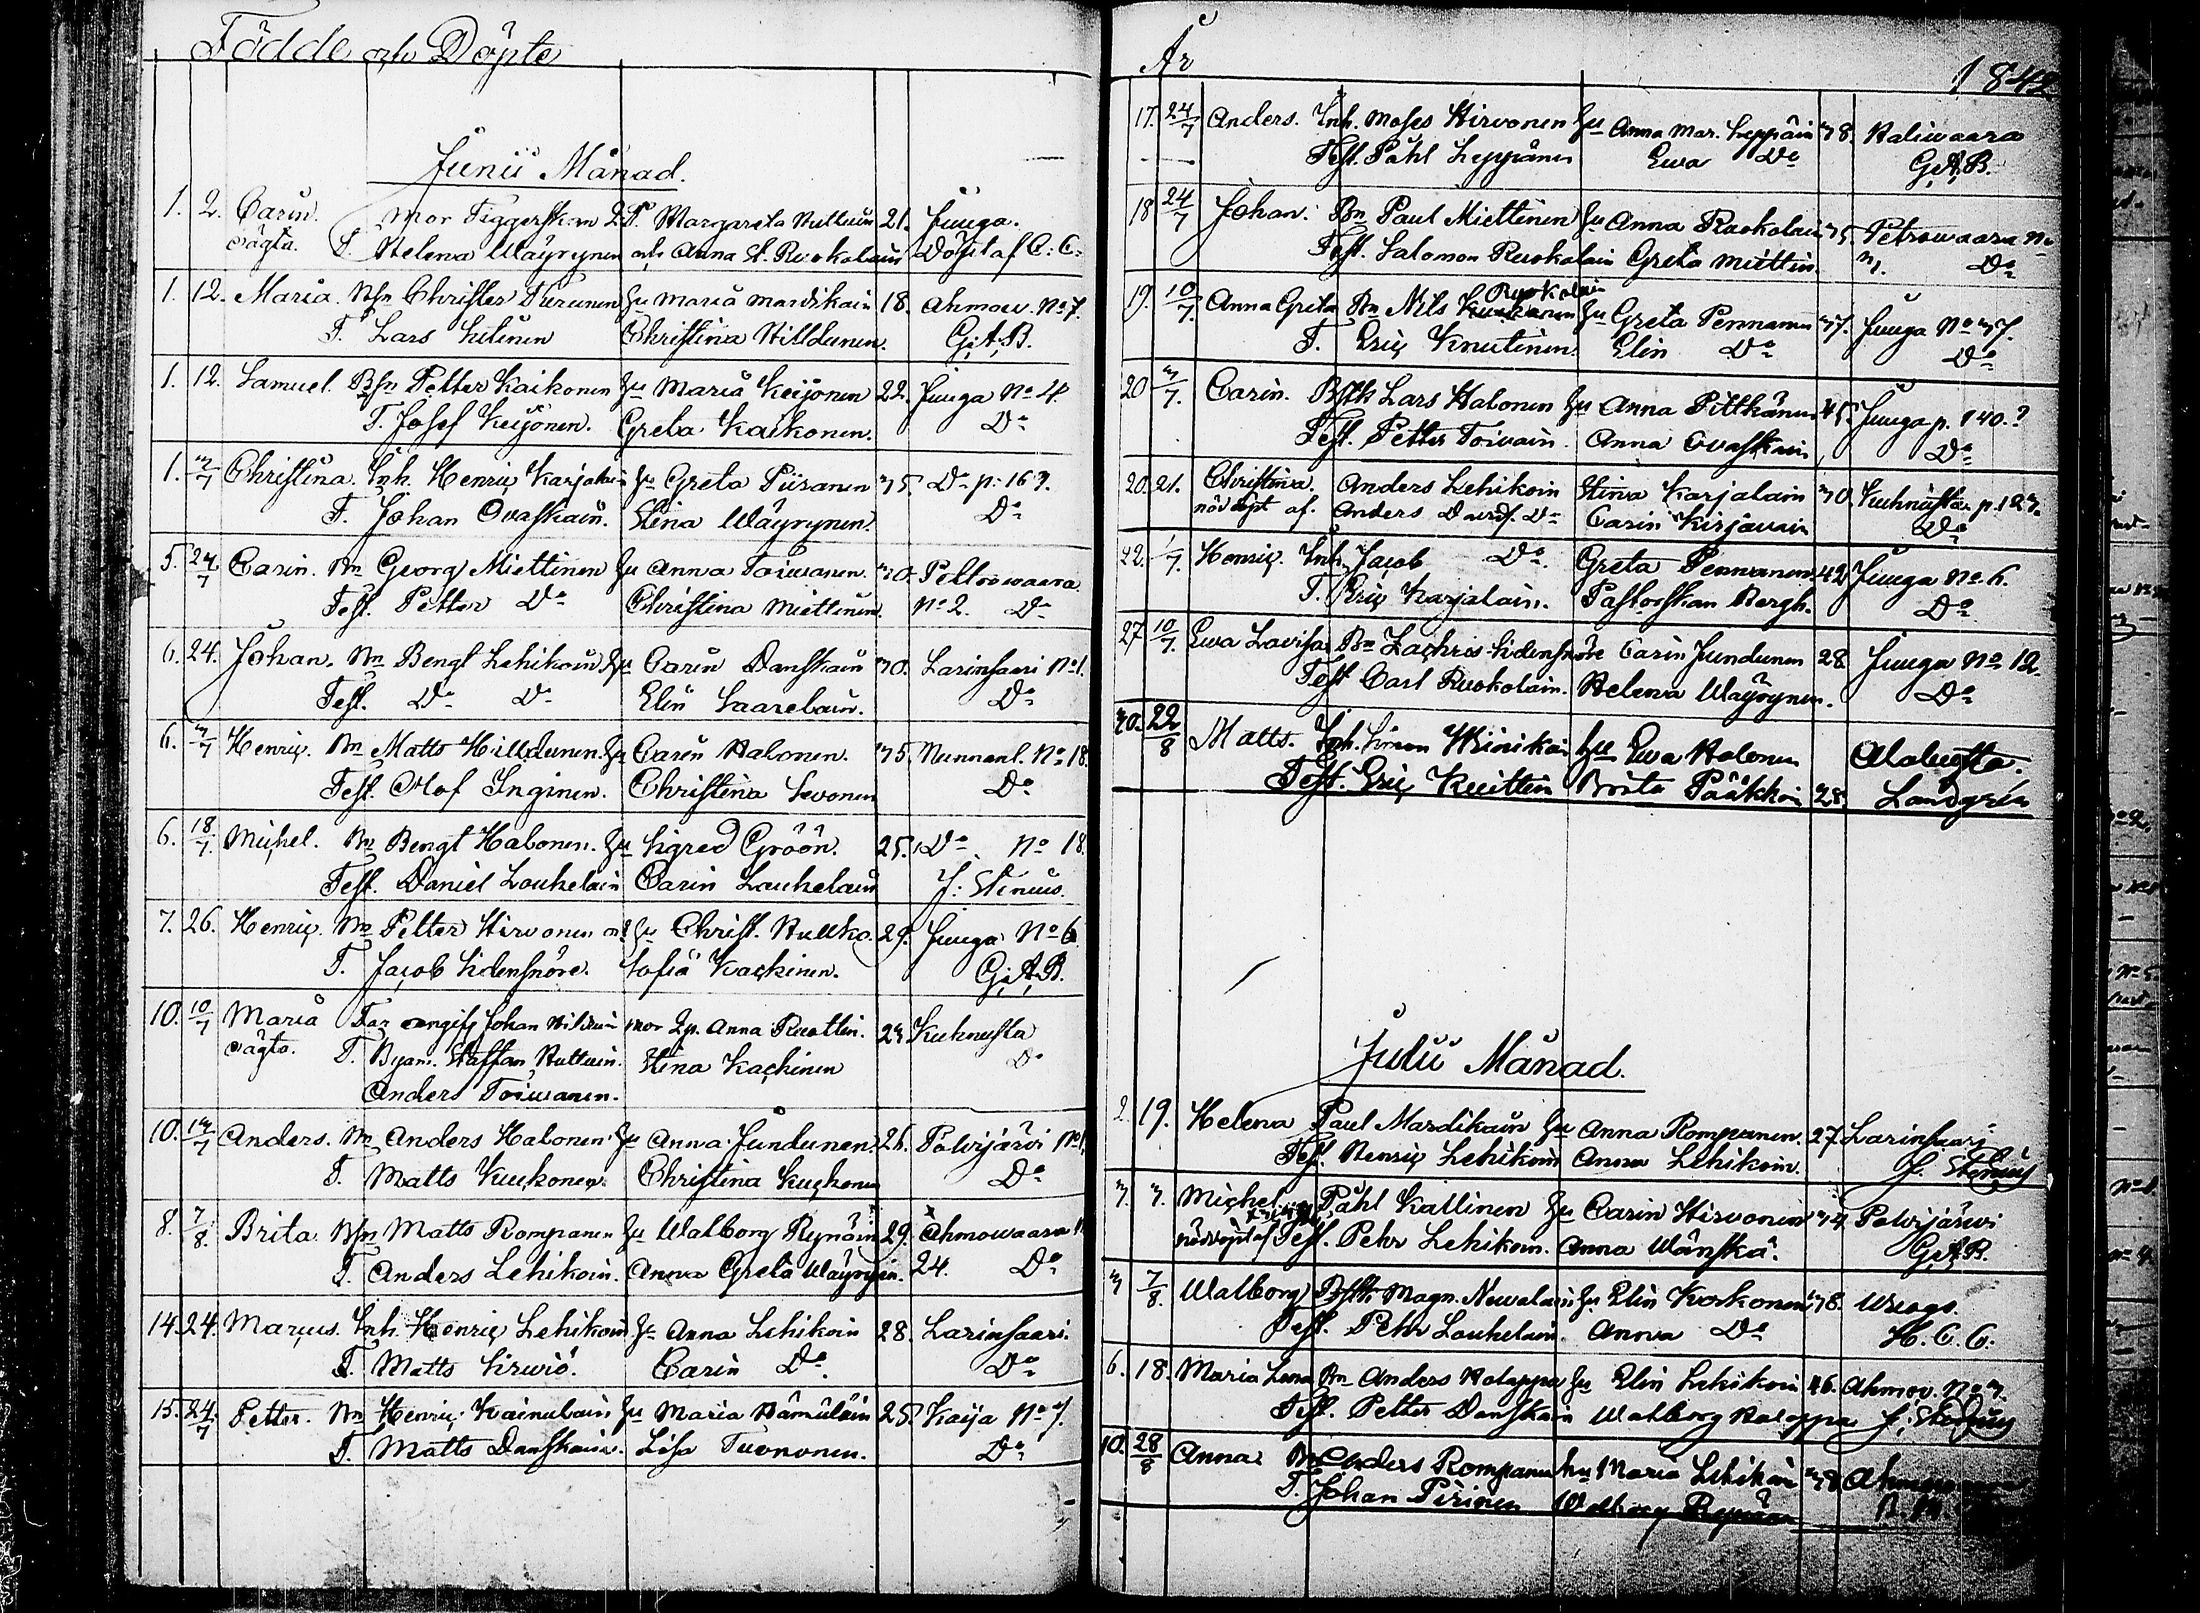 Födde och Döpte
Junii Månad.
1. 2. Carin. Mor Tiggersk:n D. P. Margareta Nuttuin 21. Juuga.
oägta. T. Helena Wäyrynen och Anna St. Ruokolain Döpt af C. C.
1. 12. Maria. Bsn Christer Turunen hu Maria Mardikain 18. Ahmow. No 7.
T. Lars Christina Hilldunen. G.A.B.
1. 12. Samuel. Bsn Petter Kaikonen hu Maria Keijonen 22. Juuga No 4.
T. Josef Keijonen. Greta Kaikonen. Do
1. 3/7 Christina. Inh. Henric Karjalain hu Greta Piiranen 35. Do p. 167.
T. Johan Ovaskain. Stina Wäyrynen. Do
5. 24/7 Carin. Bn Georg Miettinen hu Anna Toiwanen. 30. Petrowaara
Test. Petter Do Christina Miettinen. No 2. Do
6. 24. Johan. Bn Bengt Lehikoin hu Carin Danskain 30. Larinsaari No 1.
Test. Do Do Elin Saarelain. Do
6. 3/7 Henric. Bn Matts Hilldunen. hu Carin Halonen. 35. Nunnanl. No 18.
Test. Olof Inginen. Christina Sevonen Do
6. 18/7 Michel. Bn Bengt Halonen. hu Sigred Gröön. 25. Do No 18.
Test. Daniel Loukelain Carin Loukelain J. Stenius.
7. 26. Henric. Bn Petter Hirvonen hu Christ. Hukko. 29. Juuga No 6
T. Jacob Sidensnöre. Sofia Kackinen. G.A.B.
10. 10/7 Maria Far angifs Johan mor Anna 23 Kuhnusta
oägta. T. Byam. Staffan Nuttuin. Stina Kackinen Do
Anders Toiwanen.
10. 13/7 Anders. Bn Anders Halonen. hu Anna Jundunen 26. Polvijärvi No 1.
T. Matts Kuckonen. Christina Kuckonen Do
8. 7/8. Brita. Bsn Matts Rompanen hu Walborg Rynäin 29. Ahmowaara
T. Anders Lehikoin. Anna Greta Wäyrynen. 24. Do
14. 24. Marcus. Inh. Henric Lehikoin hu Anna Lehikoin 28. Larinsaari.
T. Matts Sirwiö. Carin Do Do
15. 24/7 Petter. Bn Henric Kainulain hu Maria Hämäläin 25. Kaija No 7.
T. Matts Danskain. Lisa Tuononen. Do
År 1842
17. 24/7 Anders. Inh. Moses Hirvonen hu Anna Mar. Leppäin 38. Haliwaara
Test. Påhl Leppänen Ewa Do G.A.B.
18 24/7 Johan. Bn Paul Miettinen hu Anna Ruokolain 35. Petrowaara No
Test. Salomon Ruokolain Greta Miettin. 3. Do
19. 10/7. Anna Greta Bn Nils Ruokolain hu Greta Pennanen 37. Juuga No 37.
T. Eric Knuutinen. Elin Do Do
20 3/7. Carin. Lars Halonen hu Anna Pitkänen 45 Juuga p. 140.?
Test. Petter Toivain. Anna Ovaskain Do
20. 21. Christina. Anders Lehikoin Stina Karjalain 30. Kuhnusta p. 123.
nöddöpt af. Anders Davidss. Do Carin Kirjavain Do
22. 1/7. Henric. Inh. Jacob Do Greta Pennanen. 42 Juuga No 6.
T. Eric Karjalain. Pastorskan Bergh. Do
27 10/7. Ewa Lovisa Bn Zachris Sidensnöre Carin Jundunen 28 Juuga No 12.
Test. Carl Ruokolain. Helena Wäyrynen. Do
30. 22/8 Matts. Inh. Simon hu Ewa Halonen Alaluosta.
Test. Eric Knuittin Brita Pääkkön 28. Landgrén
Julii Månad.
2 19. Helena Paul Mardikain hu Anna Rompanen. 27. Larinsaari
Test. Henric Lehikoin Anna Lehikoin. J. Stenius
3. 3. Michel Påhl Kallinen hu Carin Hirvonen 34 Polvijärvi
nöddöpt af Test. Pehr Lehikoin. Anna Wänskä. G.A.B.
3 7/8. Walborg Magn. Nevalain hu Elin Korkonen 38.
Test. Pehr Loukelain. Anna Do H. C. C.
6. 18. Maria Lena Bn Anders Ratappa hu Elin Lehikoin 46. Ahmov. No 3.
Test. Petter Danskain Walborg Ratappa J. Stenius
10. 28/8 Anna Bn Anders Rompanen hu Maria Lehikoin 38
T. Johan Piirinen Walborg Rynäin